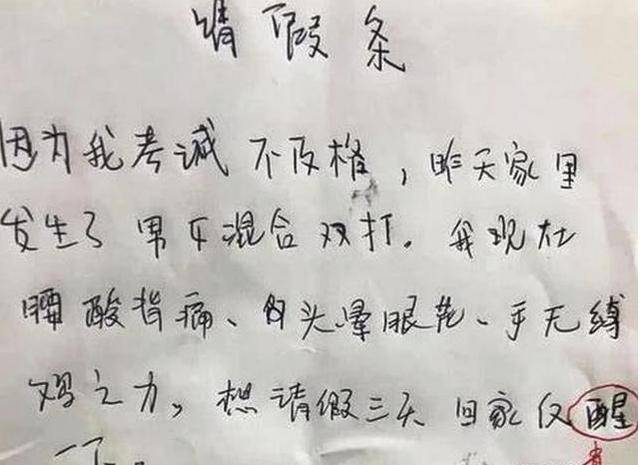 请假条
因为我考试不及格，昨天家里
发生了男女混合双打。我现在
腰酸背痛、头晕眼花、手无缚
鸡之力。想请假三天回家仅醒
一下。